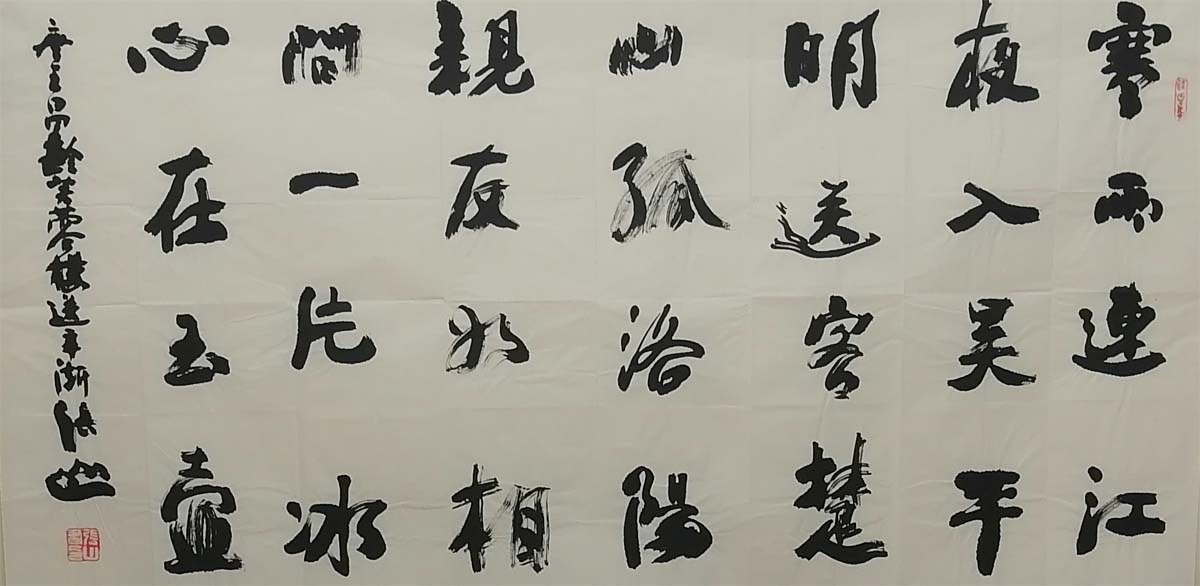 寒雨連江
夜入吳平
明送客楚
山孤洛陽
親友如相
問一片冰
心在玉壺
唐王昌齡芙蓉樓送辛漸張